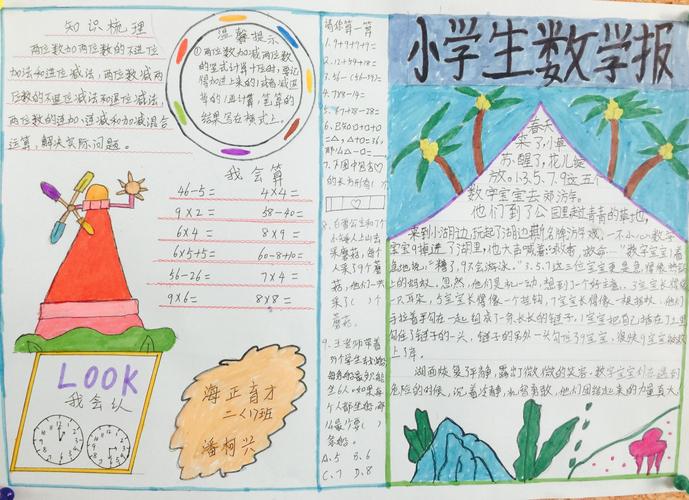 知识梳理
两位数加两位数的不进位
加法和进位减法,两位数减两
位数的不退位减法和退位减法,
两位数的连加、连减和加减混合
运算,解决实际问题。
温馨提示
①两位数加减两位数
的竖式计算十位时,要记
得加进上来的1或者减退
掉的1,在计算,笔算的
结果写在横式上。
我会算
46-5=
4×4=
9×2=
58-40=
6×4=
8×9=
6×5+5=
60-8+10=
56-26=
7×4=
9×6=
8×8=
LOOK
我会认
海正育才
二(17)班
潘柯兴
请你算一算
1. 9+9+9+9=
2. 12+59+18=
4. 7×8-14=
5. 87+28-28=
的长方形有( )
8. 白
小
来蘑菇,每个
人采了9个蘑
菇,他们一共
采了( )个
蘑菇。
9. 王老师带着
A.5 B.6
C.7 D.8
小学生数学报
春天
来了,小草
苏醒了,花儿绽
放。1.3.5.7.9这五个
数字宝宝去郊游。
他们到了公园里走过青青的草地,
来到小湖边,玩起了
宝宝9掉进了湖里,他大声喊着:“救命,救命…”数字宝宝1着
急地说:“糟了,9不会游泳。”3.5.7这三位宝宝更是急得像热锅
上的蚂蚁,忽然,他们灵机一动,想到了一个好主意,3宝宝长得像
一只耳朵,5宝宝长得像一个挂钩,7宝宝长得像一根拐杖,他们
手拉着手勾在一起组成了一条长长的链子,1宝宝把自己
勾住了链子的一头,链子的另外一头勾住了9宝宝,很快9宝宝被救
上了岸。
湖面恢复了平静,露出了微微的笑容,数字宝宝们在遇到
危险的时候,沉着冷静,机智勇敢,他们团结起来的力量真大!